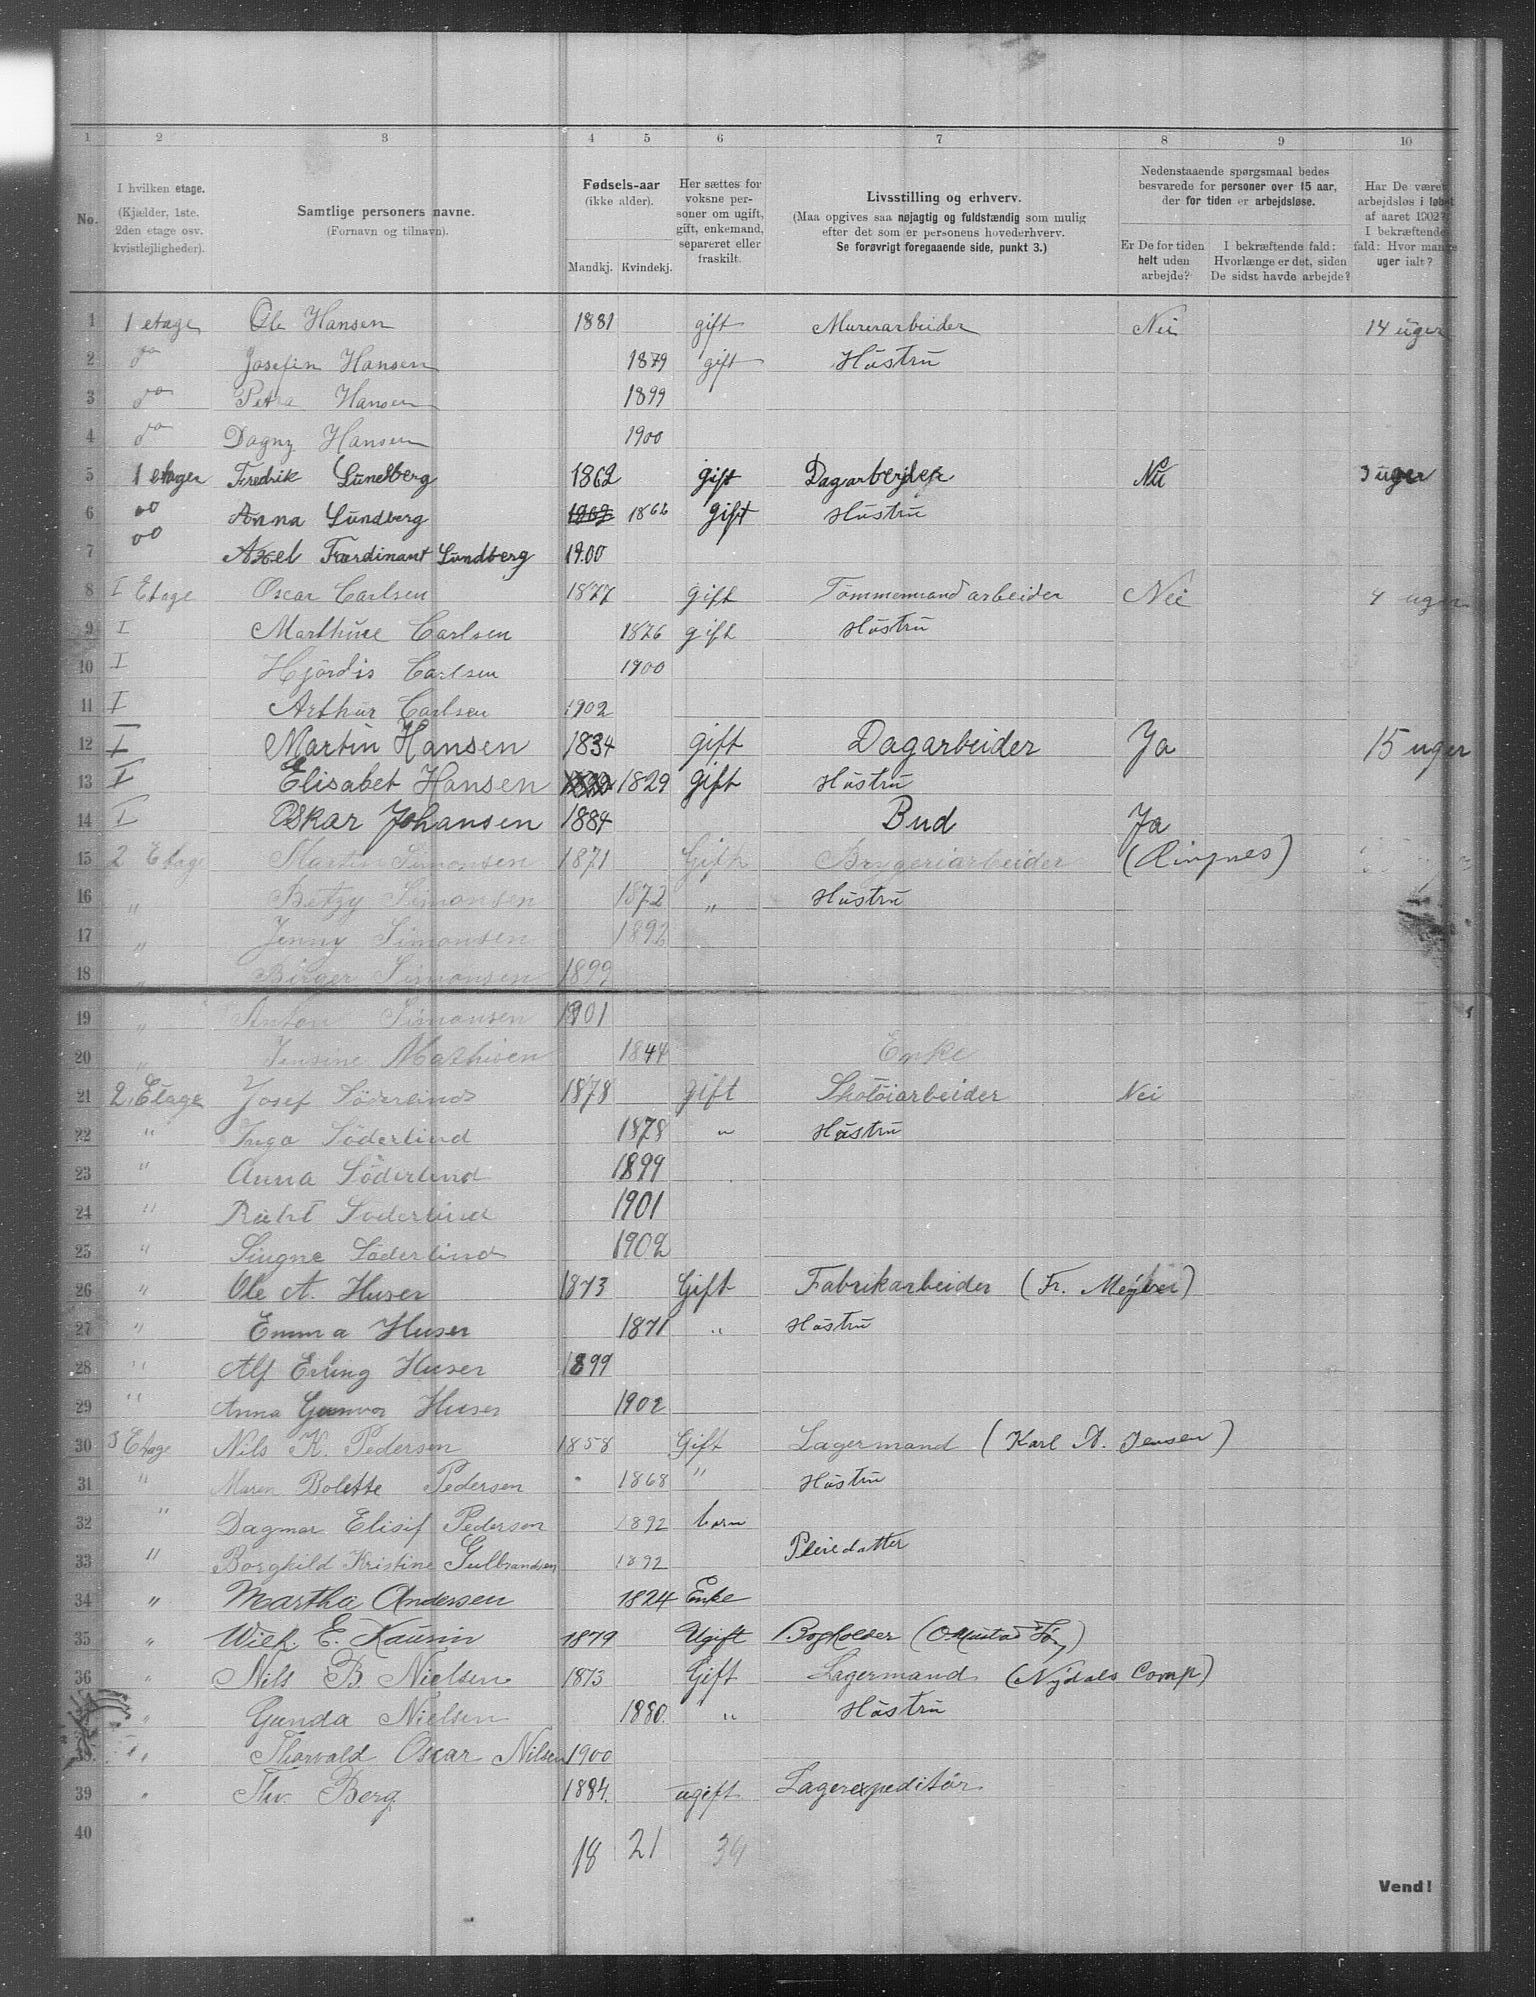 1 2 3 4 5 6 7 8 9 10
No.
I hvilken etage.
(Kjælder, 1ste.
2den etage osv.
kvistlejligheder).
Samtlige personers navne.
(Fornavn og tilnavn).
Fødsels-aar
(ikke alder).
Mandkj. Kvindekj.
Her sættes for
voksne per-
soner om ugift,
gift, enkemand,
separeret eller
fraskilt.
Livsstilling og erhverv.
(Maa opgives saa nøjagtig og fuldstændig som mulig
efter det som er personens hovederhverv.
Se forøvrigt foregaaende side, punkt 3.)
Nedenstaaende spørgsmaal bedes
besvarede for personer over 15 aar,
der for tiden er arbejdsløse.
Er De for tiden
helt uden
arbejde?
I bekræftende fald:
Hvorlænge er det, siden
De sidst havde arbejde?
Har De været
arbejdsløs i løbet
af aaret 1902?
I bekræftende
fald: Hvor mange
uger ialt?
1 1 etage Ole Hansen 1881 gift Murerarbeider Nei 14 uger
2 do Josefin Hansen 1879 gift Hustru
3 do Petra Hansen 1899
4 do Dagny Hansen 1900
5 1 etager Fredrik Lundberg 1862 gift Dagarbejder Nei 3 uger
6 do Anna Lundberg 1862 gift Hustru
7 do Axel Færdinant Lundberg 1900
8 I Etage Oscar Carlsen 1877 gift Tømmermand arbeider Nei 4 uger
9 I Marthine Carlsen 1876 gift Hustru
10 I Hjørdis Carlsen 1900
11 I Arthur Carlsen 1902
12 I Martin Hansen 1834 gift Dagarbeider Ja 15 uger
13 I Elisabet Hansen 1829 gift Hustru
14 I Oskar Johansen 1884 Bud Ja
15 2 Etage Martin Simonsen 1871 Gift Bryggeriarbeider (Ringnes)
16 " Betzy Simonsen 1872 " Hustru
17 " Jenny Simonsen 1892
18 " Birger Simonsen 1899
19 " Anton Simonsen 1901
20 " Jensine Mathisen 1844 Enke
21 2. Etage Josef Söderlind 1878 gift Skotøiarbeider Nei
22 " Inga Söderlind 1878 " Hustru
23 " Anna Söderlind 1899
24 " Söderlind 1901
25 " Singne Söderlind 1902
26 " Ole A. Huser 1873 Gift Fabrikarbeider (Fr. Meyer)
27 " Emma Huser 1871 " Hustru
28 " Alf Erling Huser 1899
29 " Anna Gunvor Huser 1902
30 3 Etage Nils K. Pedersen 1858 Gift Lagermand (Karl A. Jensen)
31 " Maren Bolette Pedersen 1868 " Hustru
32 " Dagmar Elisif Pedersen 1892 barn
33 " Borghild Kristine Gulbrandsen 1892 Pleiedatter
34 " Martha Andersen 1824 Enke
35 " Wilh. E. Kaurin 1879 Ugift Bogholder (O Mustad Søn)
36 " Nils B. Nielsen 1873 Gift Lagermand (Nydals Comp)
" Gunda Nielsen 1880. " Hustru
38 " Thorvald Oscar Nilsen 1900
39 " Thv. Berg 1884. ugift Lagerexpeditør
40
18 21 34
Vend!